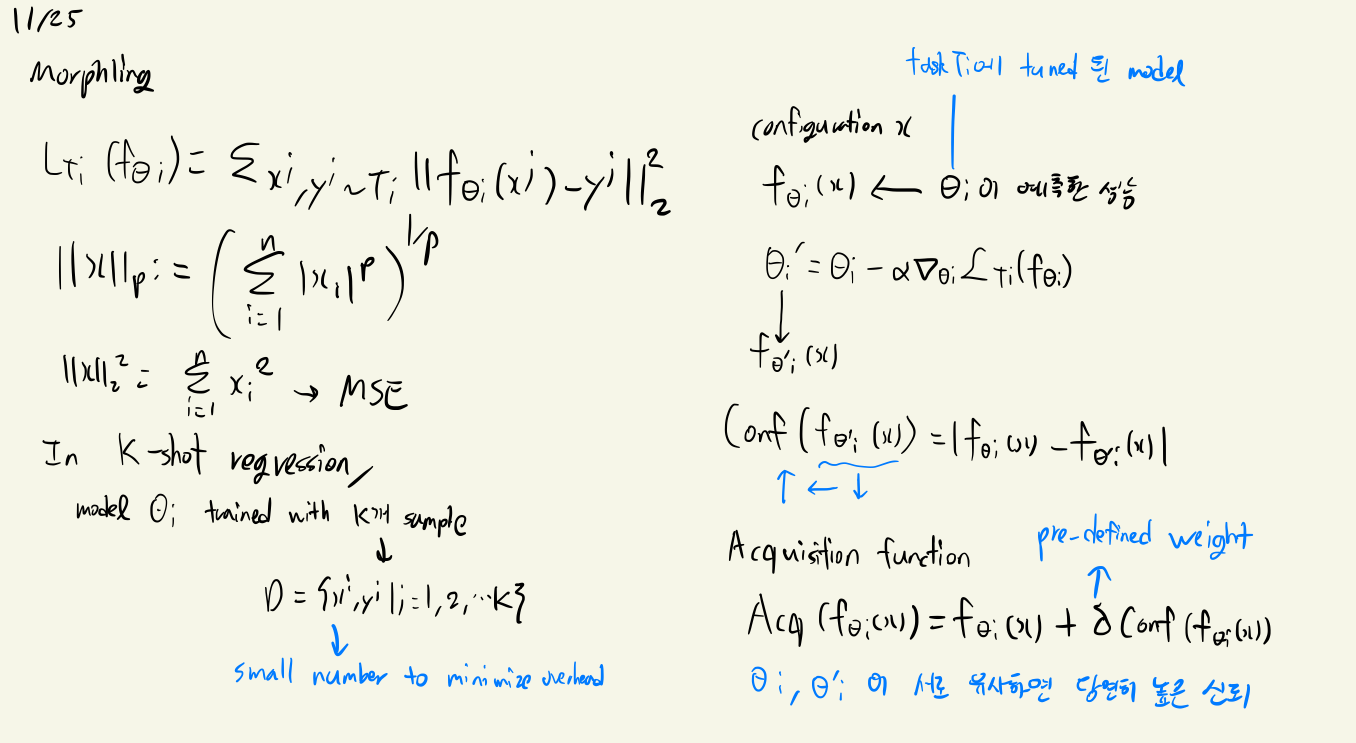 11/25
Morphling
L_{Ti} (f_{θi}) = Σ x^j, y^j ~ Ti ||f_{θi}(x^j) - y^j||_2^2
||x||_p := (Σ_{i=1}^{n} |x_i|^p)^{1/p}
||x||_2^2 = Σ_{i=1}^{n} x_i^2 → MSE
In K-shot regression,
model θi trained with K개 sample
↓
D = {x^j, y^j | j=1, 2, ...K}
↓
small number to minimize overhead
task Ti에 tuned 된 model
configuration x
f_{θi}(x) ← θi이 예측한 성능
θi' = θi - α∇_{θi} L_{Ti}(f_{θi})
↓
f_{θ'i}(x)
Conf (f_{θ'i}(x)) = |f_{θi}(x) - f_{θ'i}(x)|
↑ ← ↓
Acquisition function
pre-defined weight
↑
Acq (f_{θi}(x)) = f_{θi}(x) + δ Conf (f_{θi}(x))
θi, θ'i 이 서로 유사하면 당연히 높은 신뢰